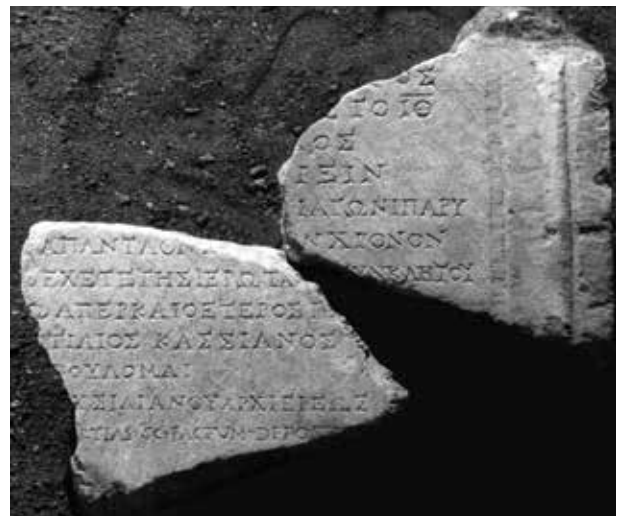 ΟΣ
ΤΟΙΘ
ΟΣ
ΕΞΙΝ
ΑΓΩΝΙΠΑΡΥ
ΧΡΟΝΟΝ
ΝΚΛΗΤΟΥ
ΑΠΑΝΤΑΟΝ
ΕΧΕΤΕΤΗΣΙΕΡΩΤΑ
ΑΠΕΡΚΑΙΟΕΤΕΡΟΣ
ΤΙΛΙΟΣ ΚΑΣΣΙΑΝΟΣ
ΟΥΛΟΜΑΙ
ΣΙΛΙΑΝΟΥΑΡΧΙΕΡΕΩΣ
TIAS·SC·FACTUM·DEPO